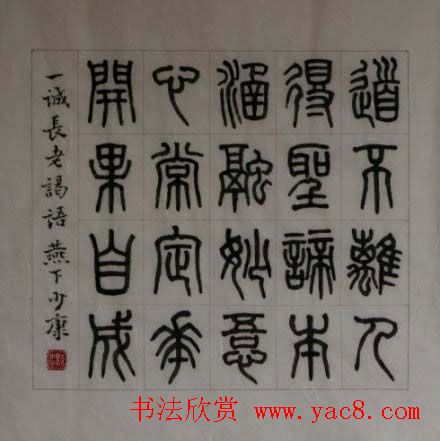 道不離人
得聖諦本
涵融妙意
心常定華
開果自成
一诚長老謁語 燕下少康
书法欣赏 www.yac8.com